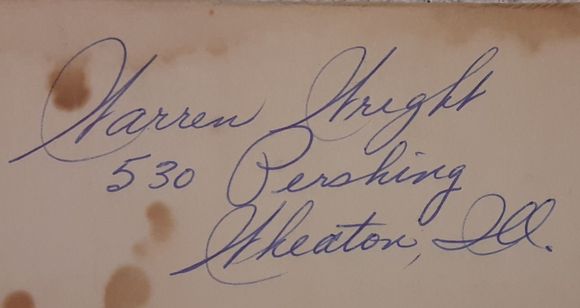 Warren Wright
530 Pershing
Wheaton, Ill.